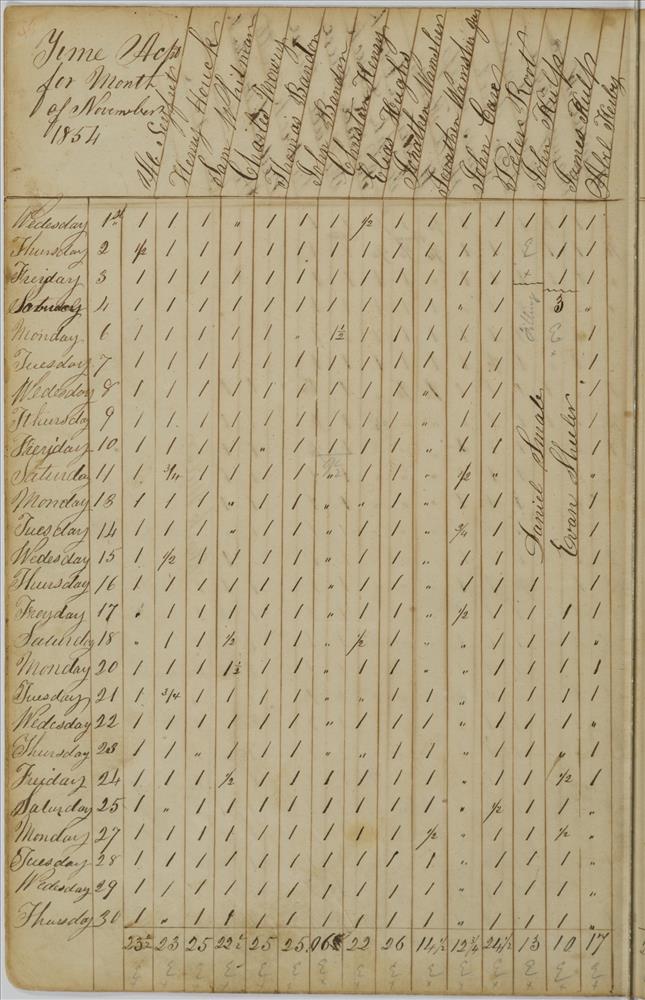 Time Acpt
for Month
of November
1854
Henry Houck
Sam Whitman
Charls Mowry
Thomas Brandon
John Brandon
Christian Henry
Elias
Jonathan Wamsher
Jonathan Wamsher Jun
John Care
Peter Root
John Kulp
James Kulp
Abel
Wedesday 1st 1 1 1 " 1 1 1 1/2 1 1 1 1 1 1 1
Thursday 2 1/2 1 1 1 1 1 1 1 1 1 1 1 Σ 1 1
Freyday 3 1 1 1 1 1 1 1 1 1 1 1 1 x 1 1
Saturday 4 1 1 1 1 1 1 1 1 1 1 " 1 3 "
Monday 6 1 1 1 1 " 1 1/2 1 1 1 1 1 Σ 1
Tuesday 7 1 1 1 1 1 1 1 1 1 1 1 1 " 1
Wedesday 8 1 1 1 1 1 1 1 1 1 " 1 1 1
Thursday 9 1 1 1 1 1 1 1 1 1 1 1 1 1
Freyday 10 1 1 1 1 " 1 1 1 " 1 1 1
Saturday 11 1 3/4 1 1 1 1 " 1 1 " 1/2 " "
Monday 13 1 1 1 " 1 1 " " 1 " 1 1 1
Tuesday 14 1 1 1 " 1 1 " 1 1 " 3/4 1 1
Daniel Smale
Evan Shuler
Wedesday 15 1 1/2 1 1 1 1 " 1 1 " 1 1 1
Thursday 16 1 1 1 1 1 1 " 1 1 " 1 1 1 1
Freyday 17 " 1 1 1 1 1 " 1 1 " 1/2 1 1 1 1
Saturday 18 " 1 1 1/2 1 1 " 1/2 1 " " 1 1 1 "
Monday 20 1 1 1 1 1/2 1 1 " 1 1 " " 1 1 1 1
Tuesday 21 1 3/4 1 1 1 1 " " 1 1 " 1 1 1 1
Wedesday 22 1 1 1 1 1 1 " 1 1 1 " 1 1 1 "
Thursday 23 1 1 " 1 1 1 " " 1 1 " 1 1 " 1
Friday 24 1 1 1 1/2 1 1 1 1 1 1 " 1 1 1/2 1
Saturday 25 1 " 1 1 1 1 1 1 1 1 " 1/2 1 1 "
Monday 27 1 1 1 1 1 1 1 1 1 1/2 " 1 1 1/2 "
Tuesday 28 1 1 1 1 1 1 1 1 1 1 " 1 1 1 "
Wedesday 29 1 1 1 1 1 1 1 1 1 1 " 1 1 1 "
Thursday 30 1 " 1 1 1 1 1 1 1 1 " 1 1 1 "
23 1/2 23 25 22 1/2 25 25 22 26 14 1/2 12 3/4 24 1/2 13 10 17